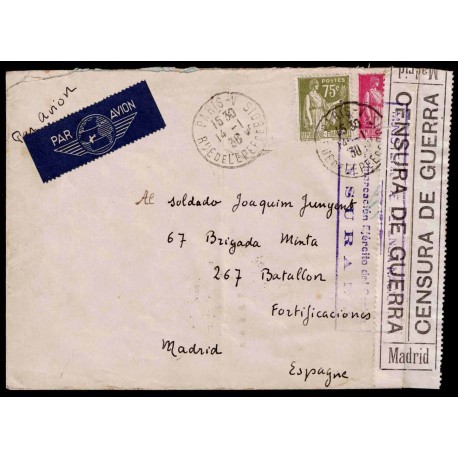 Par avion
PAR AVION
PARIS-V
15 30
14 - 1
36
R. DE L'EPEE
POSTES
75c
Al soldado Joaquim Junyent
67 Brigada Mixta
267 Batallon
Fortificaciones
Madrid
Espagne
Ejército del
CENSURA DE GUERRA
CENSURA DE GUERRA
Madrid
Madrid